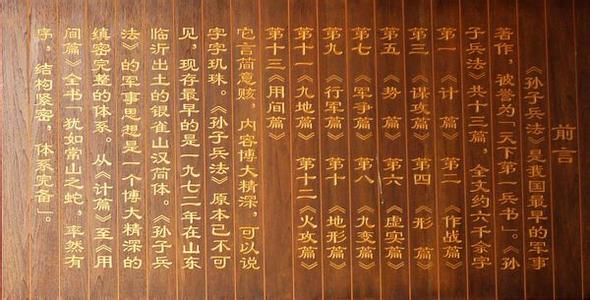 前言
《孙子兵法》是我国最早的军事
著作，被誉为「天下第一兵书」。《孙
子兵法》共十三篇，全文约六千余字
第一《计 篇》 第二《作战篇》
第三《谋攻篇》 第四《形 篇》
第五《势 篇》 第六《虚实篇》
第七《军争篇》 第八《九变篇》
第九《行军篇》 第十《地形篇》
第十一《九地篇》 第十二《火攻篇》
第十三《用间篇》
它言简意赅，内容博大精深，可以说
字字玑珠。《孙子兵法》原本已不可
见，现存最早的是一九七二年在山东
临沂出土的银雀山汉简体。《孙子兵
法》的军事思想是一个博大精深的
缜密完整的体系。从《计篇》至《用
间篇》全书「犹如常山之蛇，率然有
字，结构紧密，体系完备」。